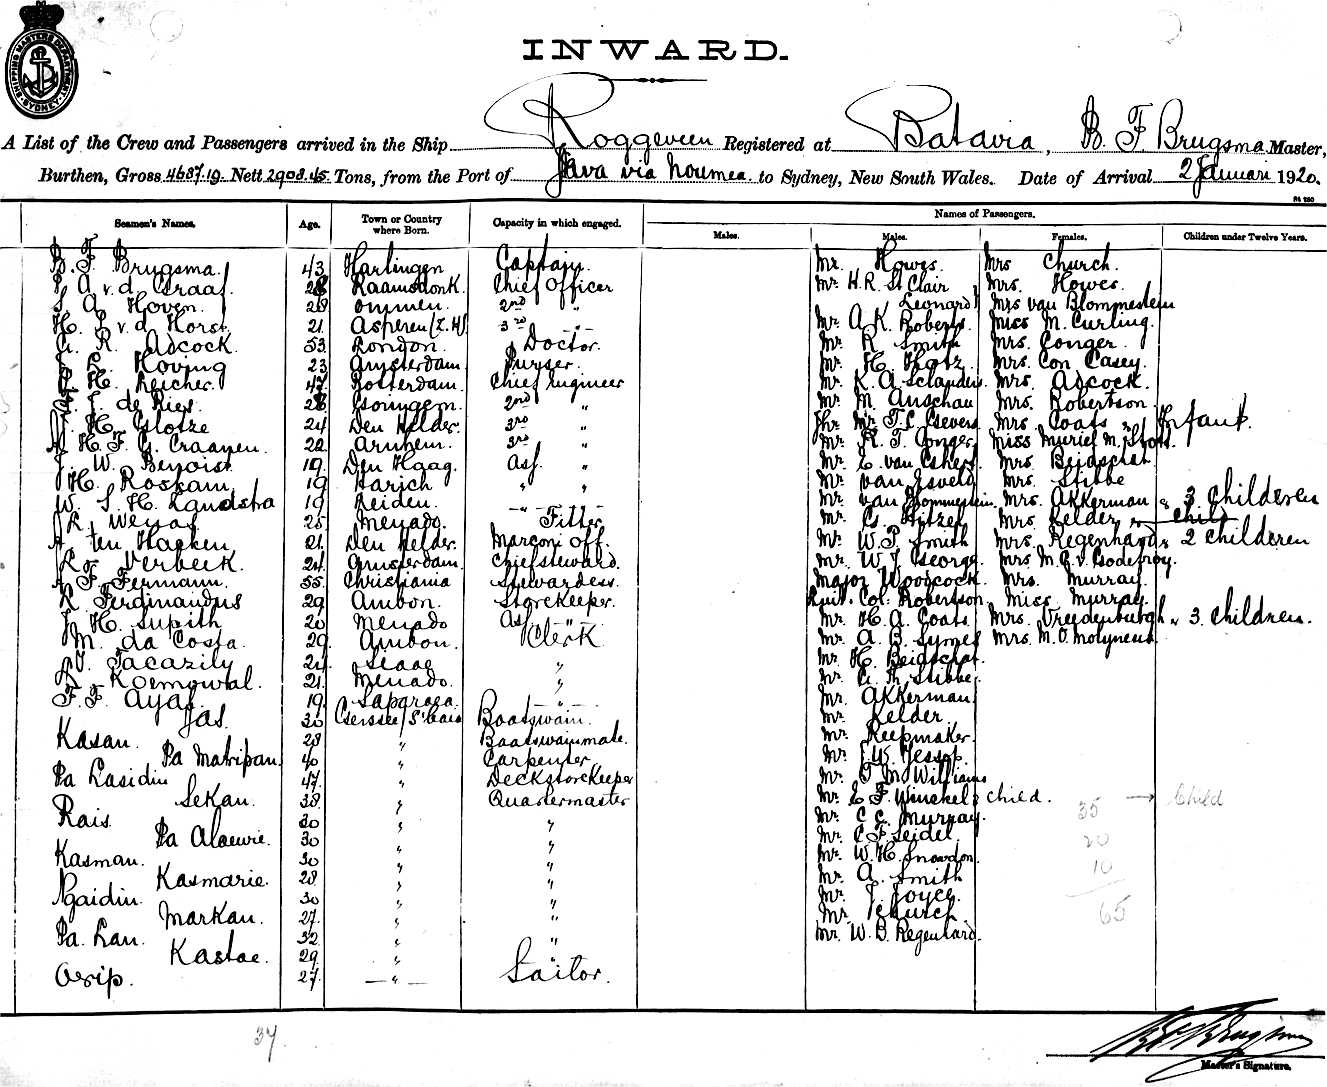 SHIPPING MASTERS DEPARTMENT SYDNEY
INWARD.
A List of the Crew and Passengers arrived in the Ship Roggeveen Registered at Batavia, B. F. Brugsma Master,
Burthen, Gross 4687.19 Nett 2908.45 Tons, from the Port of Java via Noumea to Sydney, New South Wales. Date of Arrival 2 Januari 1920.
Seamen's Names. Age. Town or Country where Born. Capacity in which engaged. Names of Passengers.
Males. Males. Females. Children under Twelve Years.
B. F. Brugsma. 43 Harlingen Captain. Mr. Howes. Mrs Church.
A. v. d. Graaf. 28 Raamsdonk. Chief Officer Mr. H. R. St Clair Mrs. Howes.
A. Hoven. 28 Ommen. 2nd " Leonard Mrs van Blommestein
H. v. d. Horst. 21. Asperen (Z. H). 3rd - " - Mr. A. K. Roberts. Miss M. Curling.
G. R. Adcock. 53 London. Doctor. Mr. R. Smith Mrs. Conger.
Hoving 23 Amsterdam. Purser. Mr. H. Hotz Mrs. Con Casey.
H. Reicher. 47 Rotterdam. Chief Engineer Mr. K. A. Mrs. Adcock.
de Ries. 28 2nd " Mr. M. Anschau Mrs. Robertson
H. Glotze 24 Den Helder. 3rd " Jhr. Mr. Mrs. Coats " Infant.
H. F. G. Craanen. 22 Arnhem. 3rd " Mr. R. T. Conger. Miss Muriel M.
J. W. Benoist. 19. Den Haag. Ass. " Mr. E. van Mrs. Beidschat
H. Roskam 19 " " Mr. van Mrs. Stibbe
W. S. H. Landstra 19 Leiden. - " - Mr. van Blommestein. Mrs. Akkerman " 3 Childeren
R. 25 Menado. Fitter Mr. G. Mrs. Kelder " child
A. ten Haaken 21. Den Helder. Marconi Off. Mr. W. P. Smith Mrs. Regenhard " 2 childeren
R. Verbeek. 24. Amsterdam. Chief steward. Mr. W. J. George. Mrs M. G. v. Godefroy.
A. F. Fermann. 55. Christiania Stewardess. Major Woodcock. Mrs. Murray.
R. Ferdinandus 29 Ambon. Storekeeper. Luit. Col. Robertson Miss Murray.
J. H. Supith 20 Menado Ass. - " - Mr. H. A. Coats Mrs. Vredenburgh " 3 childeren.
M. da Costa. 29. Ambon. Clerk Mr. A. B. Symes Mrs. M. O. Molyneux.
Tacazily 24 " Mr. H. Beidschat.
Koemowal. 21. Menado. " Mr. G. Th. Stibbe.
F. F. Ayal. 19. Saparoea. - " - Mr. Akkerman
Jas. 30 Boatswain. Mr. Kelder.
Kasan. 28 " Boatswainmate. Mr. Keepmaker.
Pa Matripan. 40 " Carpenter. Mr. Jessop.
Pa Lasidin 47. " Deckstorekeeper Mr. T. M. Williams
Sekan. 38. " Quartermaster Mr. E. F. Winckel & child. → Child
Rais. 30 " " Mr. C. C. Murray. 35
Pa Aloewie. 30 " " Mr. C. F. Seidel 20
Kasman. 30 " " Mr. W. H. Snowdon. 10
Kasmarie. 28 " " Mr. A. Smith
Ngaidin. 30 " " Mr. J. Joyce. 65
Markan. 27. " " Mr. Church.
Pa. Lan. 32 " " Mr. W. B. Regenhard.
Kastoe. 29. " "
Orip. 27. - " - Sailor.
37
Master's Signature.